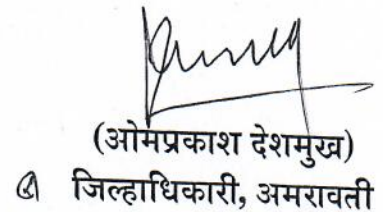 (ओमप्रकाश देशमुख)
जिल्हाधिकारी, अमरावती